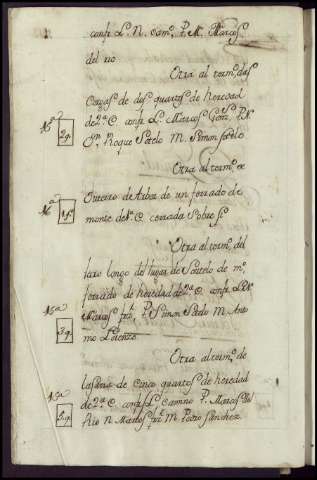 confr L. N. cam.º P. M. Marcos
del rio
Otra al term.º das
Corgas de dos quartos de heredad
de 2ª C. confr L. Marcos Gonz. P. N.
Jn Roque Sotelo M. Simon Sotelo
16ª
2q.
Otra al term.º
Outeiro de Arbor de un ferrado de
monte de 1ª C. cerrada sobre si
16ª
1f.
Otra al term.º del
laxo longo de lugar de Soutelo de m.º
ferrado de heredad de 2ª C. confr L. N.
Marcos P. Simon Sotelo M. Anto
nio Lorenzo
15ª
3q.
Otra al term.º de
de cinco quartos de heredad
de 2ª C. confr L. camino P. Marcos del
Rio N. Marcos M. Pedro Sanchez
15ª
5q.